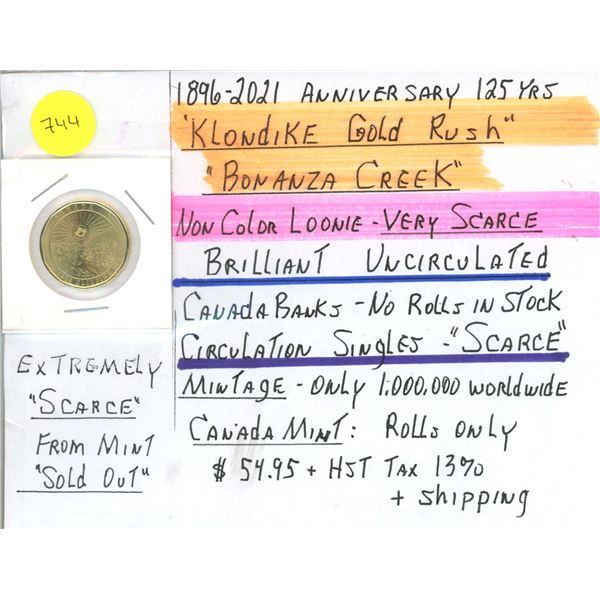 744
1896-2021 ANNIVERSARY 125 YRS
"KLONDIKE GOLD RUSH"
"BONANZA CREEK"
NON COLOR LOONIE - VERY SCARCE
BRILLIANT UNCIRCULATED
CANADA BANKS - NO ROLLS IN STOCK
CIRCULATION SINGLES - "SCARCE"
MINTAGE - ONLY 1,000,000 WORLDWIDE
CANADA MINT: ROLLS ONLY
$ 54.95 + HST TAX 13%
+ SHIPPING
EXTREMELY
"SCARCE"
FROM MINT
"SOLD OUT"